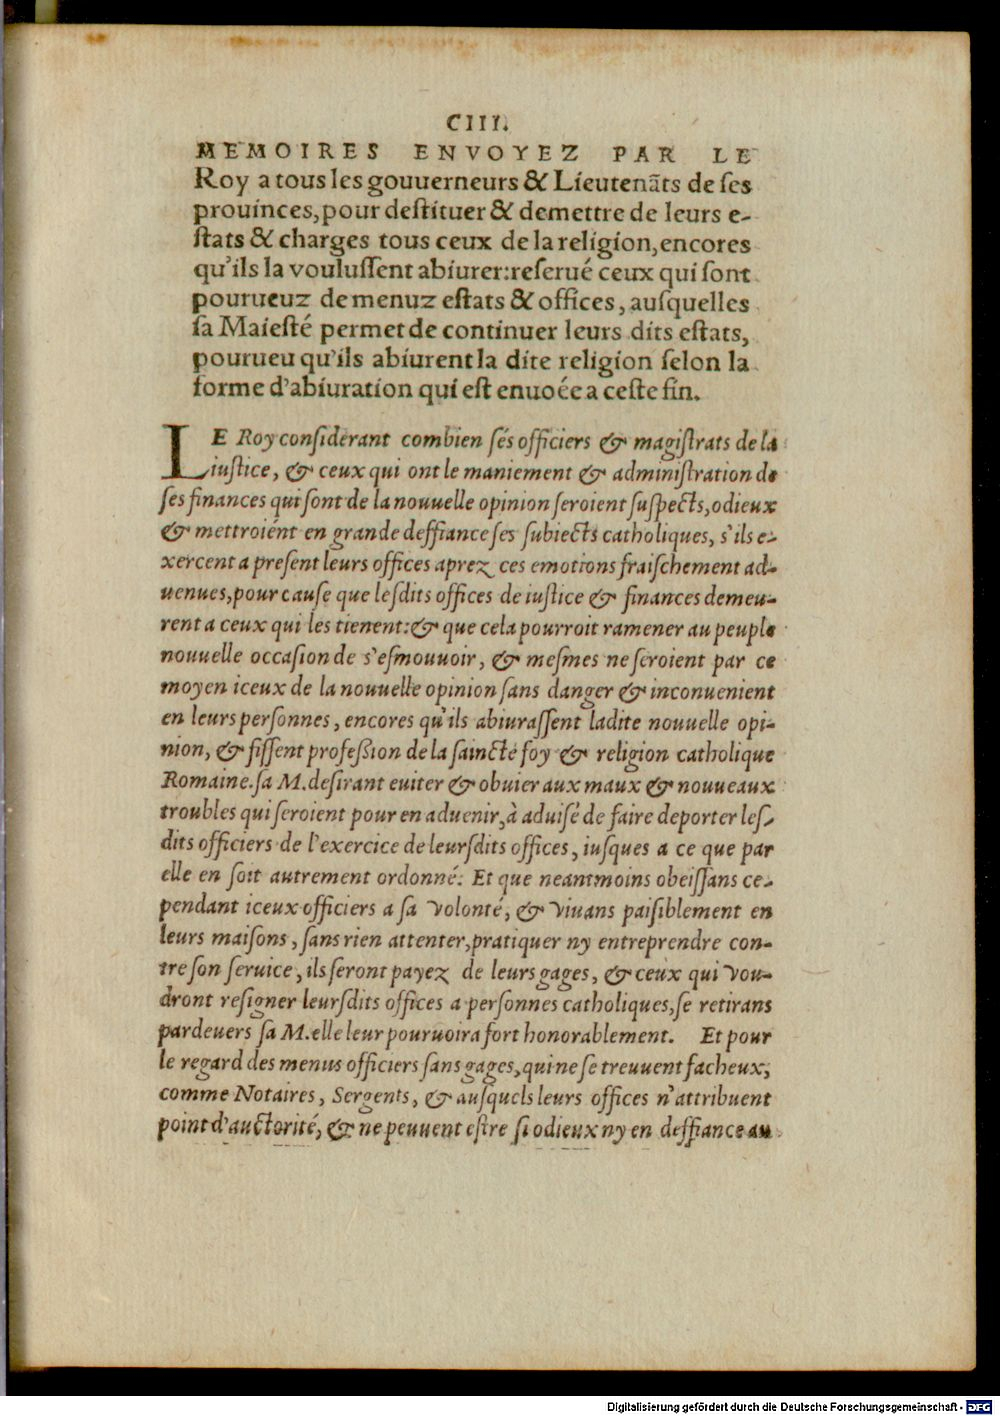 CIII.
MEMOIRES ENVOYEZ PAR LE
Roy a tous les gouuerneurs & Lieutenãts de ſes
prouinces, pour deſtituer & demettre de leurs e-
ſtats & charges tous ceux de la religion, encores
qu'ils la vouluſſent abiurer: reſerué ceux qui ſont
pourueuz de menuz eſtats & offices, auſquelles
ſa Maieſté permet de continuer leurs dits eſtats,
pourueu qu'ils abiurent la dite religion ſelon la
forme d'abiuration qui eſt enuoée a ceſte fin.
LE Roy conſiderant combien ſés officiers & magiſtrats de la
iuſtice, & ceux qui ont le maniement & adminiſtration de
ſes finances qui ſont de la nouuelle opinion ſeroient ſuſpects, odieux
& mettroiént en grande deffiance ſes ſubiects catholiques, s'ils e-
xercent a preſent leurs offices aprez ces emotions fraiſchement ad-
uenues, pour cauſe que leſdits offices de iuſtice & finances demeu-
rent a ceux qui les tienent: & que cela pourroit ramener au peuple
nouuelle occaſion de s'eſmouuoir, & meſmes ne ſeroient par ce
moyen iceux de la nouuelle opinion ſans danger & inconuenient
en leurs perſonnes, encores qu'ils abiuraſſent ladite nouuelle opi-
nion, & fiſſent profeßion de la ſaincte foy & religion catholique
Romaine. ſa M. deſirant euiter & obuier aux maux & nouueaux
troubles qui ſeroient pour en aduenir, à aduiſé de faire deporter leſ-
dits officiers de l'exercice de leurſdits offices, iuſques a ce que par
elle en ſoit autrement ordonné: Et que neantmoins obeiſſans ce-
pendant iceux officiers a ſa volonté, & viuans paiſiblement en
leurs maiſons, ſans rien attenter, pratiquer ny entreprendre con-
tre ſon ſeruice, ils ſeront payez de leurs gages, & ceux qui vou-
dront reſigner leurſdits offices a perſonnes catholiques, ſe retirans
pardeuers ſa M. elle leur pouruoira fort honorablement. Et pour
le regard des menus officiers ſans gages, qui ne ſe treuuent facheux,
comme Notaires, Sergents, & auſquels leurs offices n'attribuent
point d'auctorité, & ne peuuent eſtre ſi odieux ny en deffiance au
Digitalisierung gefördert durch die Deutsche Forschungsgemeinschaft - DFG